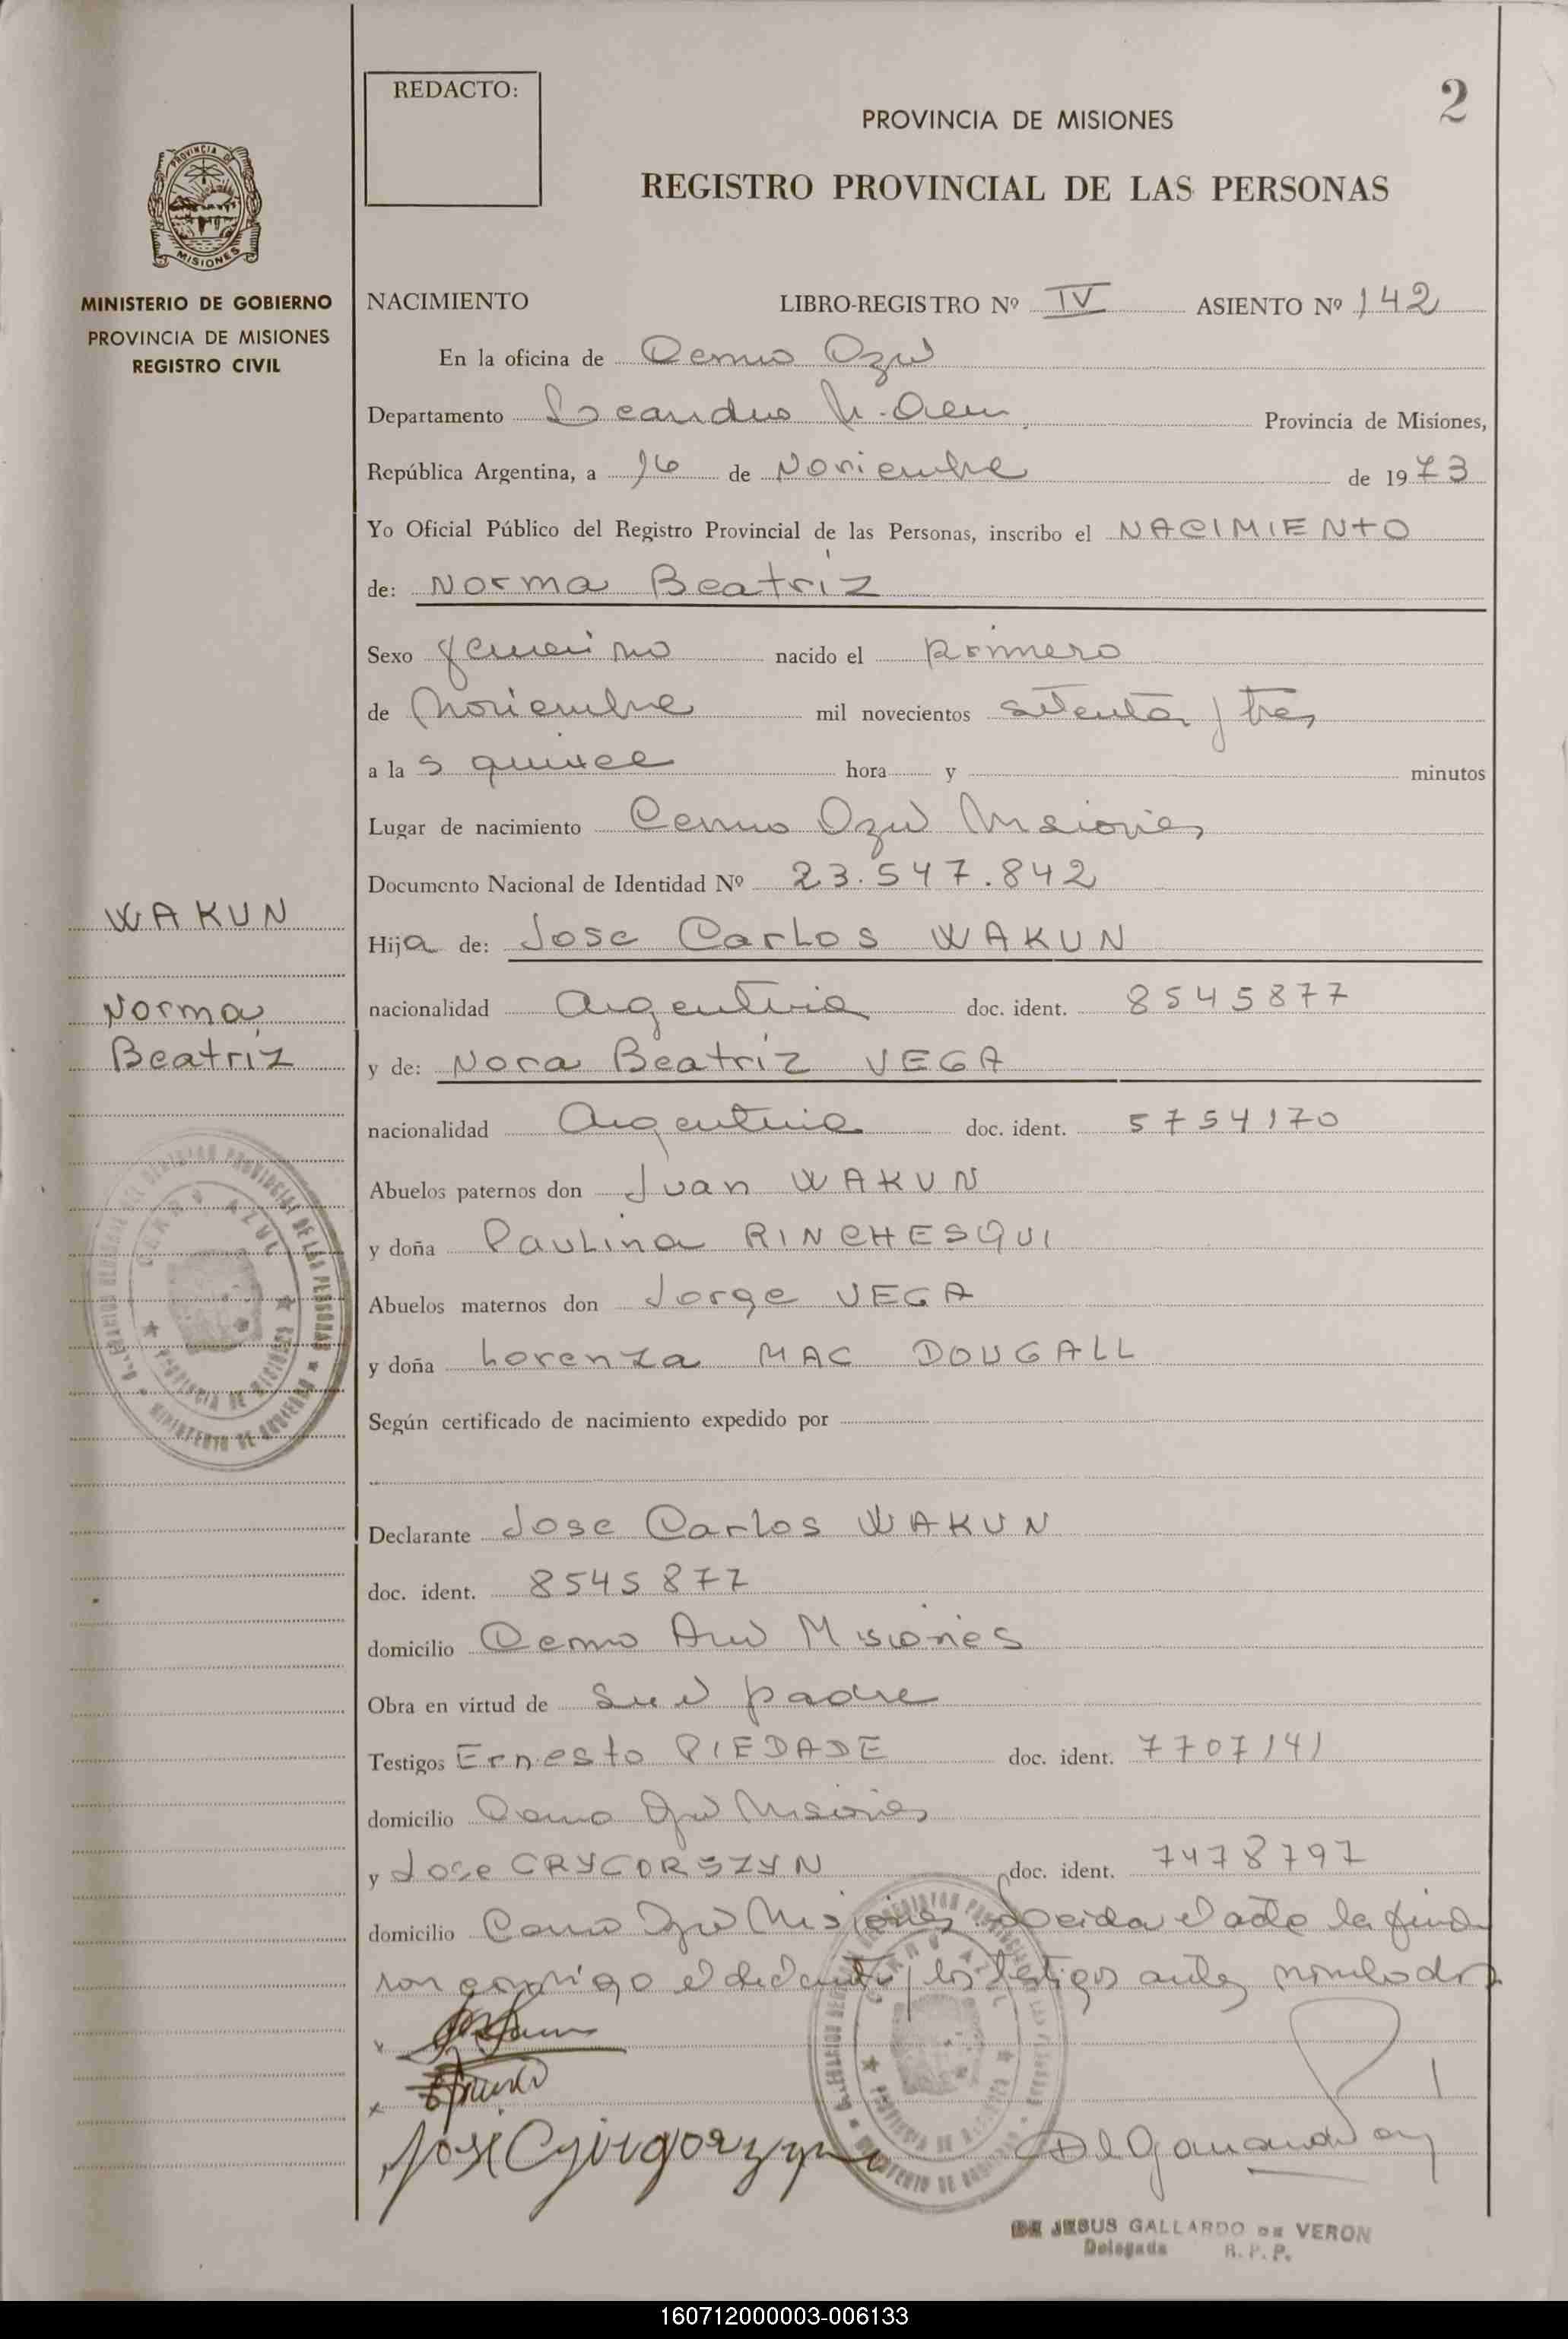 REDACTO:
2
PROVINCIA DE MISIONES
REGISTRO PROVINCIAL DE LAS PERSONAS
PROVINCIA DE
MISIONES
MINISTERIO DE GOBIERNO
PROVINCIA DE MISIONES
REGISTRO CIVIL
NACIMIENTO LIBRO-REGISTRO Nº IV ASIENTO Nº 142
En la oficina de Cerro Azul
Departamento Leandro N. Alem Provincia de Misiones,
República Argentina, a 16 de Noviembre de 1973
Yo Oficial Público del Registro Provincial de las Personas, inscribo el NACIMIENTO
de: Norma Beatriz
Sexo femenino nacido el primero
de Noviembre mil novecientos setenta y tres
a la s quince hora y minutos
Lugar de nacimiento Cerro Azul Misiones
Documento Nacional de Identidad Nº 23.547.842
WAKUN
Hija de: Jose Carlos WAKUN
Norma
Beatriz
nacionalidad Argentina doc. ident. 8545877
y de: Nora Beatriz VEGA
nacionalidad Argentina doc. ident. 5754170
Abuelos paternos don Juan WAKUN
y doña Paulina RINCHESQUI
Abuelos maternos don Jorge VEGA
y doña Lorenza MAC DOUGALL
Según certificado de nacimiento expedido por
Declarante Jose Carlos WAKUN
doc. ident. 8545877
domicilio Cerro Azul Misiones
Obra en virtud de ser el padre
Testigos Ernesto PIEDADE doc. ident. 7707141
domicilio Cerro Azul Misiones
y Jose CRYCORSZYN doc. ident. 7478797
domicilio Cerro Azul Misiones Leida el acta la firma
ron conmigo el declarante y los testigos antes nombrados
DE JESUS GALLARDO DE VERON
Delegada R. P. P.
160712000003-006133